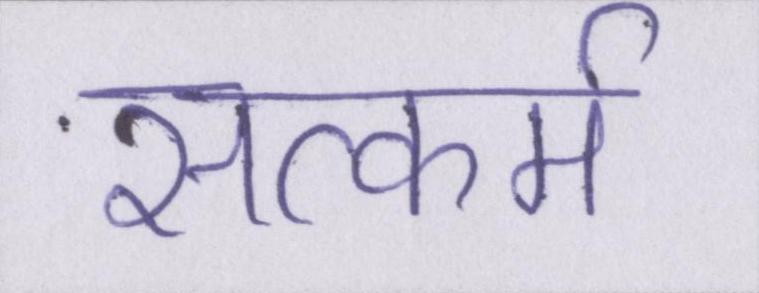 सत्कर्म